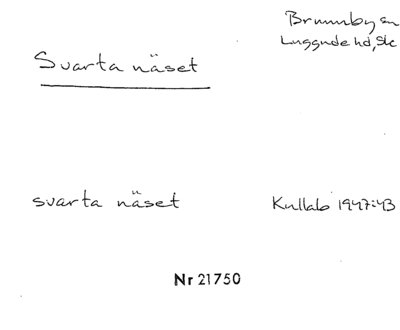 Brunnby sn
Luggude hd, Sk
Svarta näset
svarta näset
Kullab 1947:43
Nr 21750